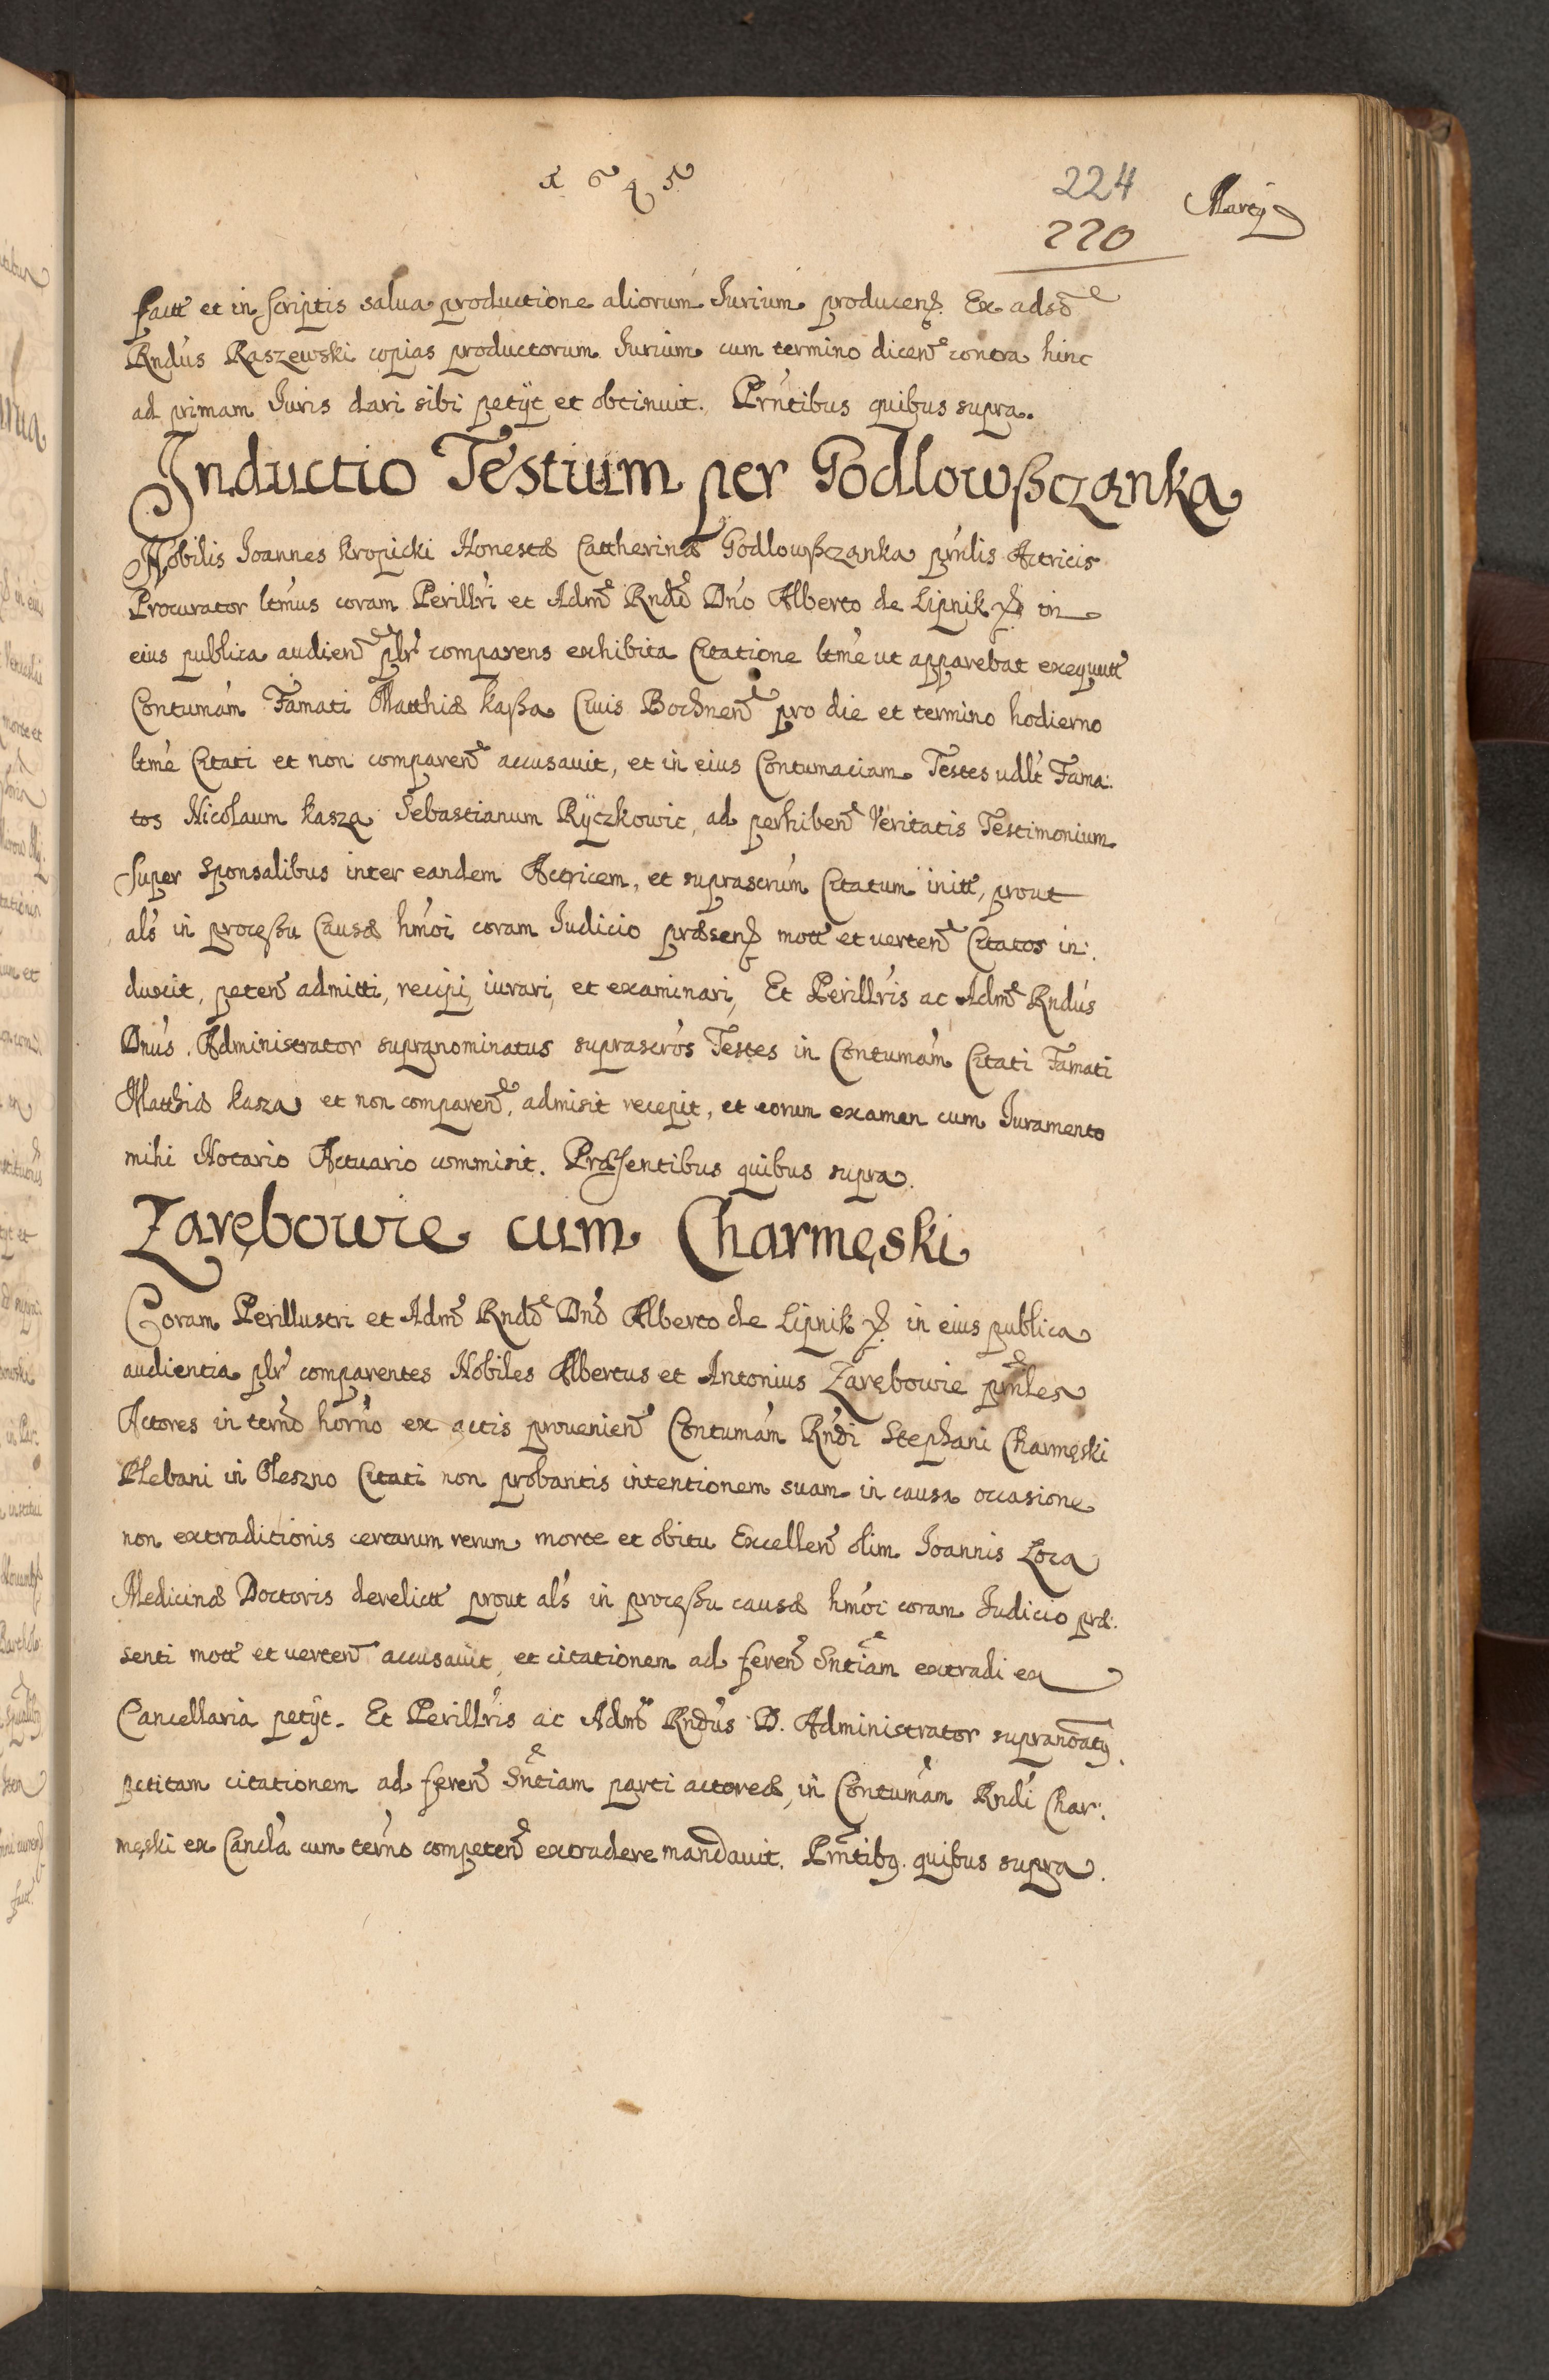 1625
224 Martÿ
220
fact et in scriptis salua productione aliorum Iurium producen. Ex adso
Rndus Raszewski copias productorum Iurium cum termino dicen contra hinc
ad primam Iuris dari sibi petÿt et obtinuit. Prntibus quibus supra.
Inductio Testium per Godlowßczanka
Nobilis Ioannes Kropicki Honestæ Cattherinæ Godlowßczanka prnlis Actricis
Procurator ltmus coram Perillri et Adm Rndo Dno Alberto de Lipnik in
eius publica audien plr comparens exhibita Citatione ltme ut apparebat exequut
Contumam Famati Matthiæ Kaßa Ciuis Bochnen pro die et termino hodierno
ltme Citati et non comparen accusauit, et in eius Contumaciam Testes udlt Fama:
tos Nicolaum Kasza Sebastianum Rÿczkowic, ad perhiben Veritatis Testimonium
super Sponsalibus inter eandem Actricem, et suprascrum Citatum initt, prout
als in proceßu Causæ hmoi coram Iudicio præsen mott et verten Citatos in:
duxit, peten admitti, recipi, iurari, et examinari, Et Perillris ac Adm Rndus
Dnus Administrator supranominatus suprascros Testes in Contumam Citati Famati
Matthiæ Kasza et non comparen, admisit recepit, et eorum examen cum Iuramento
mihi Notario Actuario commisit. Præsentibus quibus supra.
Zarębowie cum Charmęski
Coram Perillustri et Adm Rndo Dno Alberto de Lipnik in eius publica
audientia plr comparentes Nobiles Albertus et Antonius Zarębowie prnles
Actores in terno horno ex actis prouenien Contumam Rndi Stephani Charmęski
Plebani in Oleszno Citati non probantis intentionem suam in causa occasione
non extraditionis certarum rerum morte et obitu Excellen olim Ioannis Loca
Medicinæ Doctoris derelict prout als in proceßu causæ hmoi coram Iudicio præ:
senti mott et verten accusauit, et citationem ad feren Sntiam extradi ex
Cancellaria petÿt. Et Perillris ac Adm Rndus D. Administrator supranoatg
petitam citationem ad feren Sntiam parti actoreæ, in Contumam Rndi Char:
męski ex Cancla cum terno competen extradere mandauit. Prntibg quibus supra.